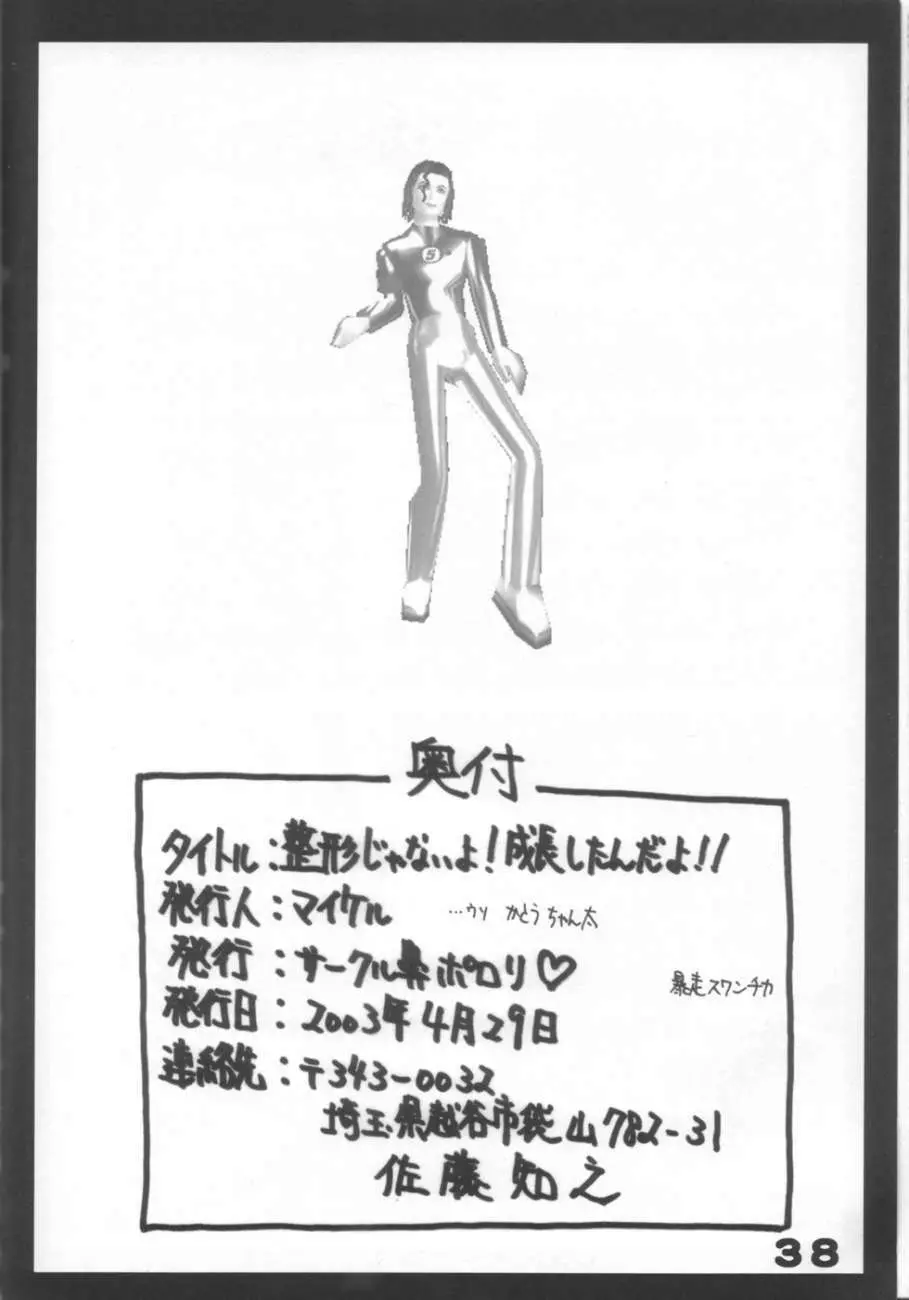 5
奥付
タイトル：整形じゃないよ！成長したんだよ！！
発行人：マイケル …ウソ かとうちゃん太
発行：サークル鼻ポロリ♡
暴走スワンチカ
発行日：2003年4月29日
連絡先：〒343-0032
埼玉県越谷市袋山782-31
佐藤知之
38